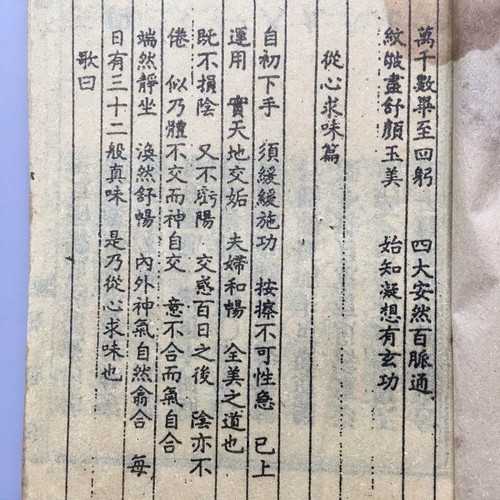 萬千數畢至回躬 四大安然百脈通
紋皴盡舒顏玉美 始知凝想有玄功
從心求味篇
自初下手 須緩緩施功 按擦不可性急 已上
運用 實天地交姤 夫婦和暢 全美之道也
既不損陰 又不虧陽 交感百日之後 陰亦不
倦 似乃體不交而神自交 意不合而氣自合
端然靜坐 渙然舒暢 內外神氣自然翕合 每
日有三十二般真味 是乃從心求味也
歌曰